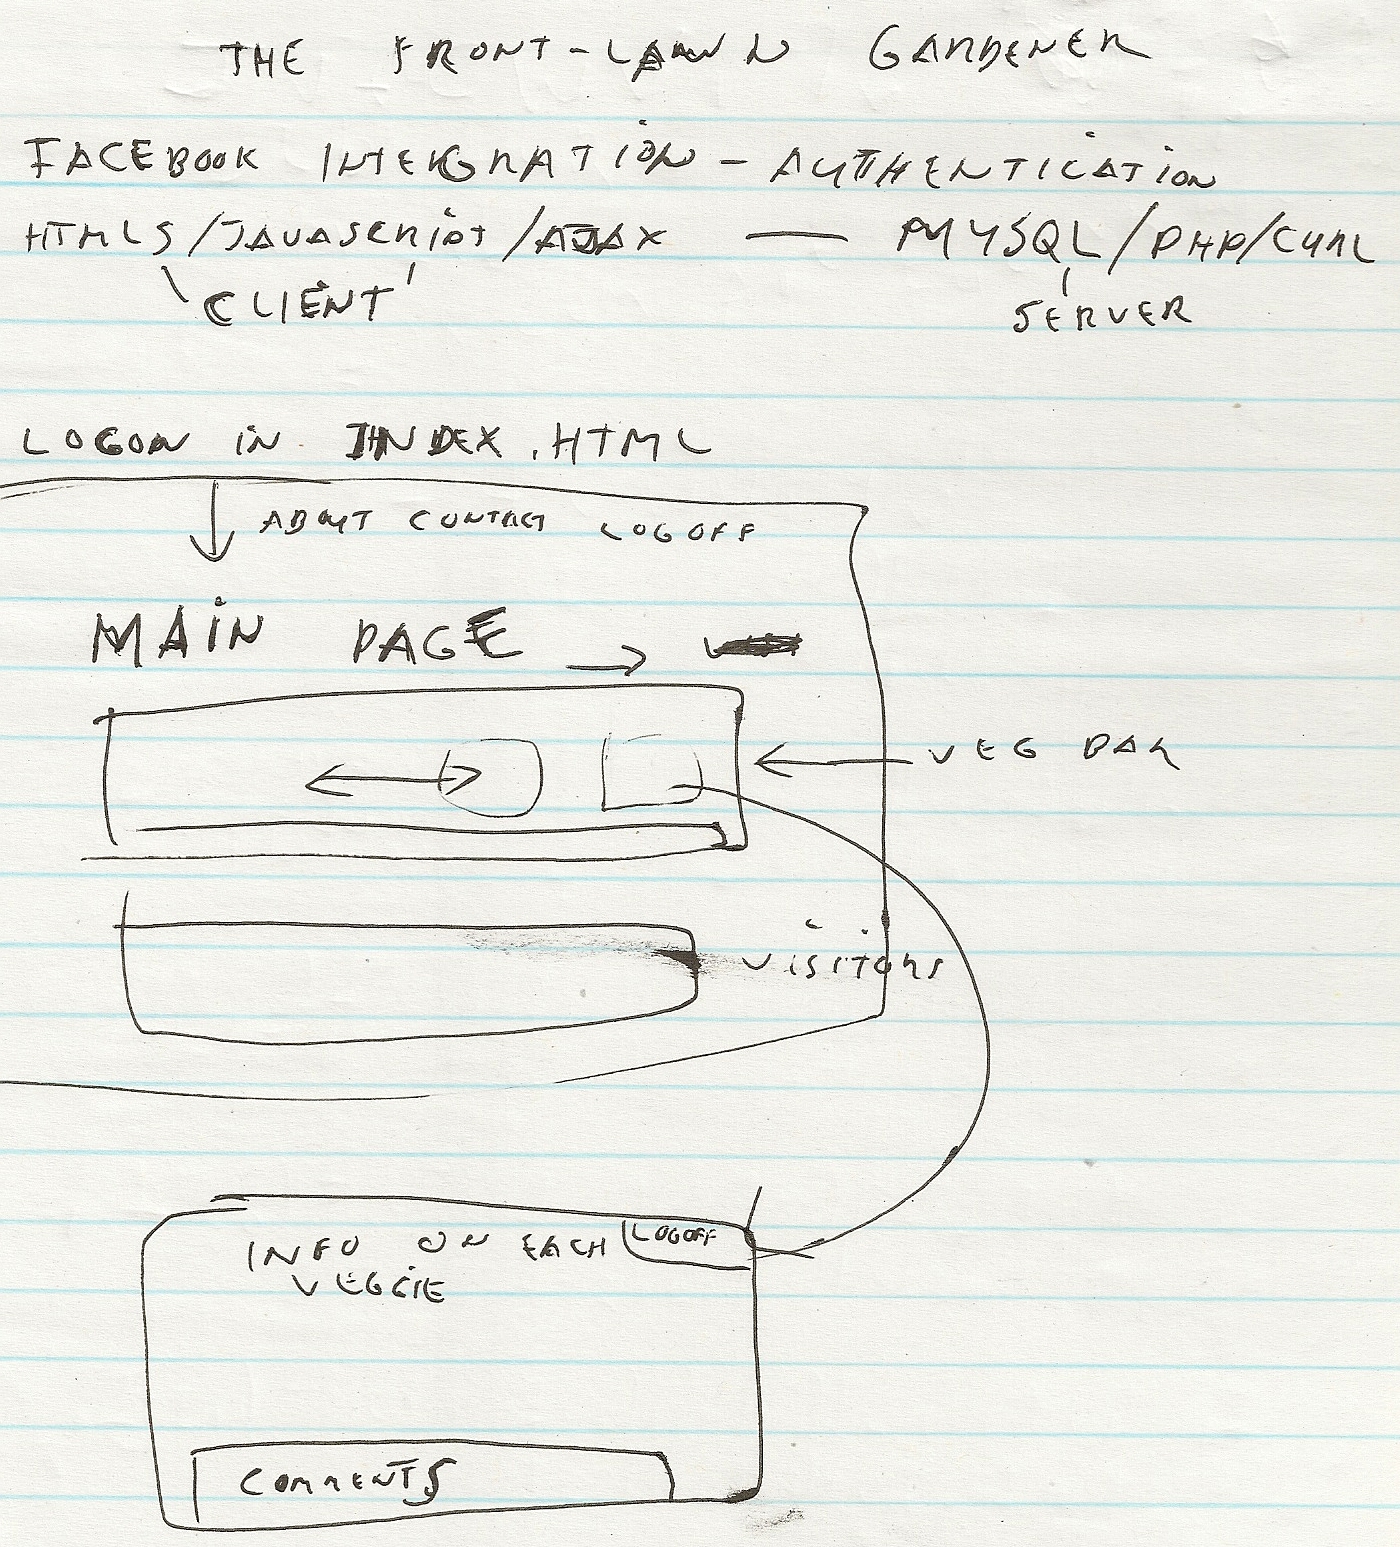 THE FRONT-LAWN GARDENER
FACEBOOK INTEGRATION - AUTHENTICATION
HTML5/JAVASCRIPT/AJAX — MYSQL/PHP/CURL
CLIENT SERVER
LOGON IN INDEX.HTML
ABOUT CONTACT LOGOFF
MAIN PAGE →
VEG BAR
VISITORS
INFO ON EACH LOGOFF
VEGGIE
COMMENTS